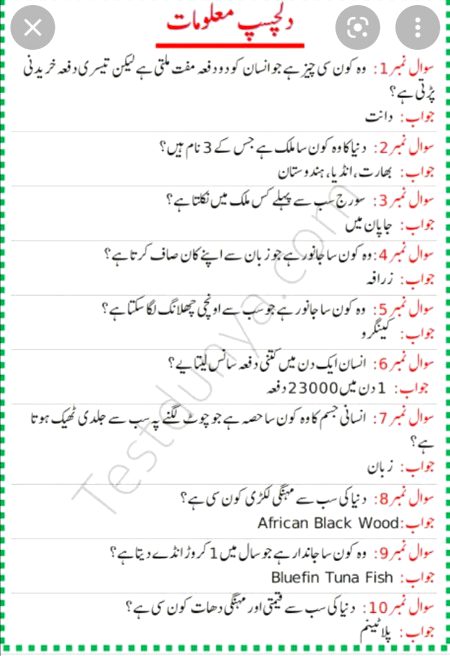 دلچسپ معلومات
سوال نمبر1: وہ کون سی چیز ہے جو انسان کو دو دفعہ مفت ملتی ہے لیکن تیسری دفعہ خریدنی
پڑتی ہے؟
جواب: دانت
سوال نمبر2: دنیا کا وہ کون سا ملک ہے جس کے 3 نام ہیں؟
جواب: بھارت، انڈیا، ہندوستان
سوال نمبر3: سورج سب سے پہلے کس ملک میں نکلتا ہے؟
جواب: جاپان میں
سوال نمبر4: وہ کون سا جانور ہے جو زبان سے اپنے کان صاف کرتا ہے؟
جواب: زرافہ
سوال نمبر5: وہ کون سا جانور ہے جو سب سے اونچی چھلانگ لگا سکتا ہے؟
جواب: کینگرو
سوال نمبر6: انسان ایک دن میں کتنی دفعہ سانس لیتا ہے؟
جواب: 1 دن میں 23000 دفعہ
سوال نمبر7: انسانی جسم کا وہ کون سا حصہ ہے جو چوٹ لگنے پہ سب سے جلدی ٹھیک ہوتا
ہے؟
جواب: زبان
سوال نمبر8: دنیا کی سب سے مہنگی لکڑی کون سی ہے؟
جواب: African Black Wood
سوال نمبر9: وہ کون سا جاندار ہے جو سال میں 1 کروڑ انڈے دیتا ہے؟
جواب: Bluefin Tuna Fish
سوال نمبر10: دنیا کی سب سے قیمتی اور مہنگی دھات کون سی ہے؟
جواب: پلاٹینم
Testdunya.com